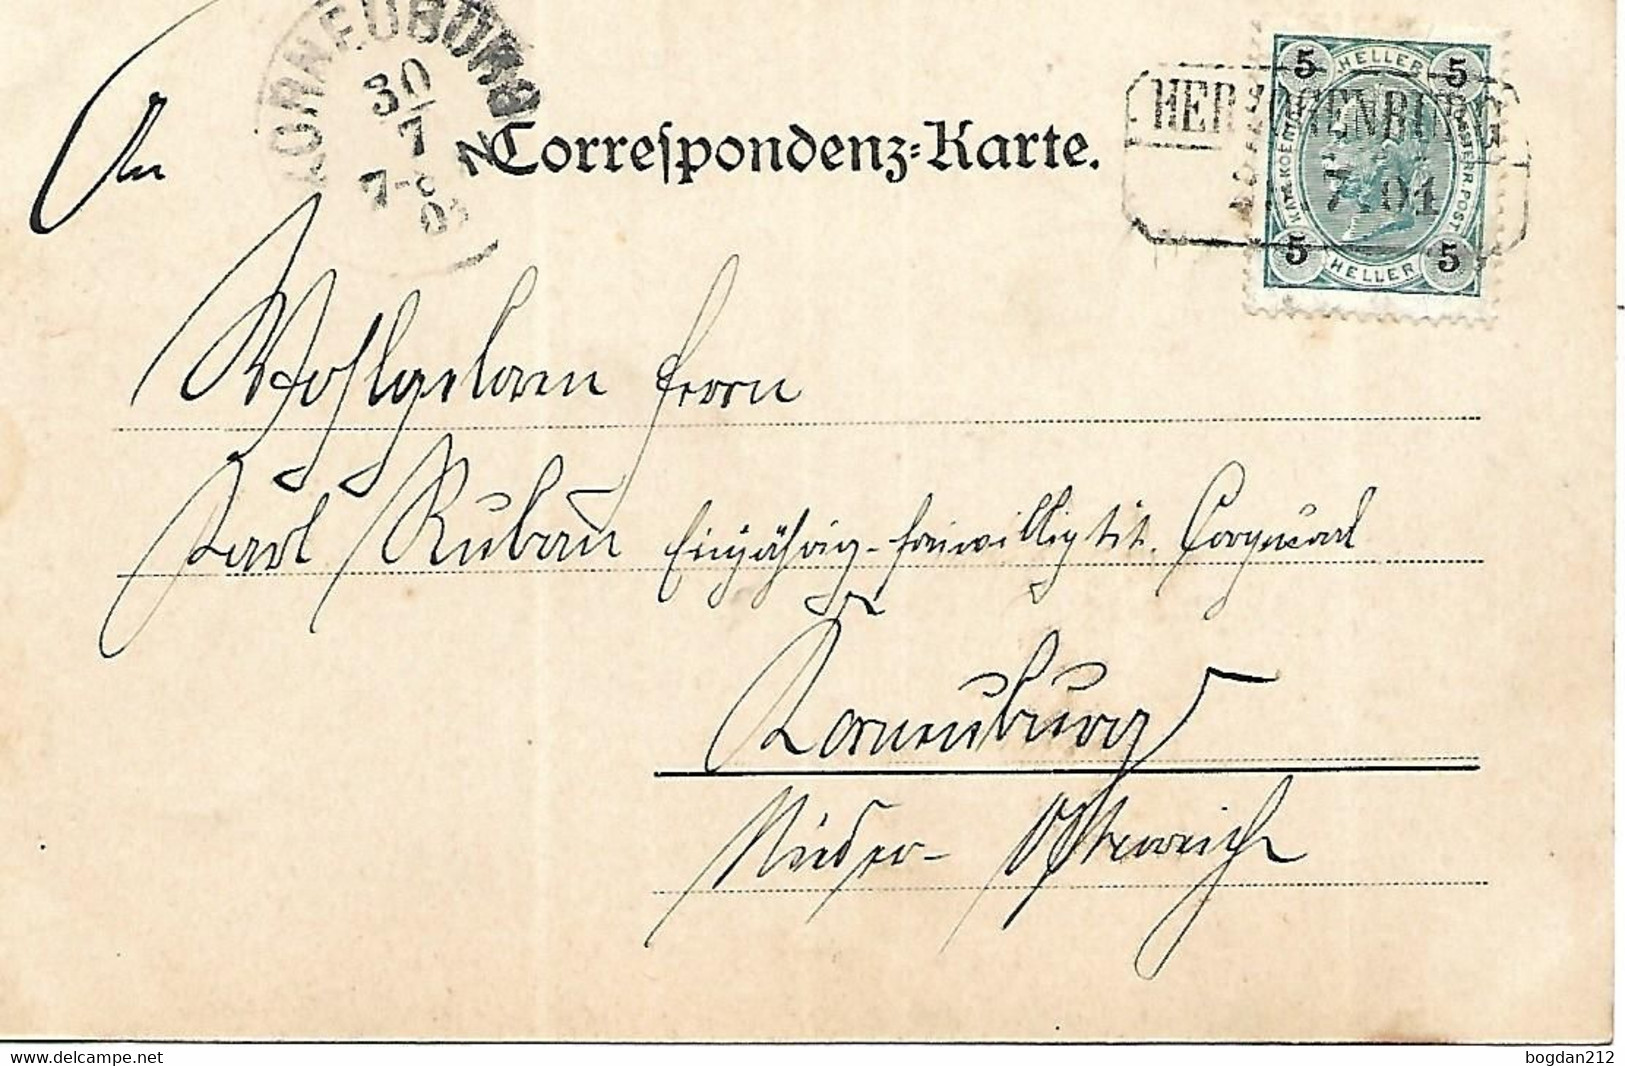 KORNEUBURG
30/7
7-8 N
An
Correspondenz-Karte.
HERZOGENBURG
7. 01
5 HELLER 5
KAIS. KOENIGL. OESTERR. POST
5 HELLER 5
Wohlgeboren Herrn
Karl Rubau Einjährig-freiwillig tit. Corporal
Korneuburg
Nieder-Österreich
delcampe.net
bogdan212